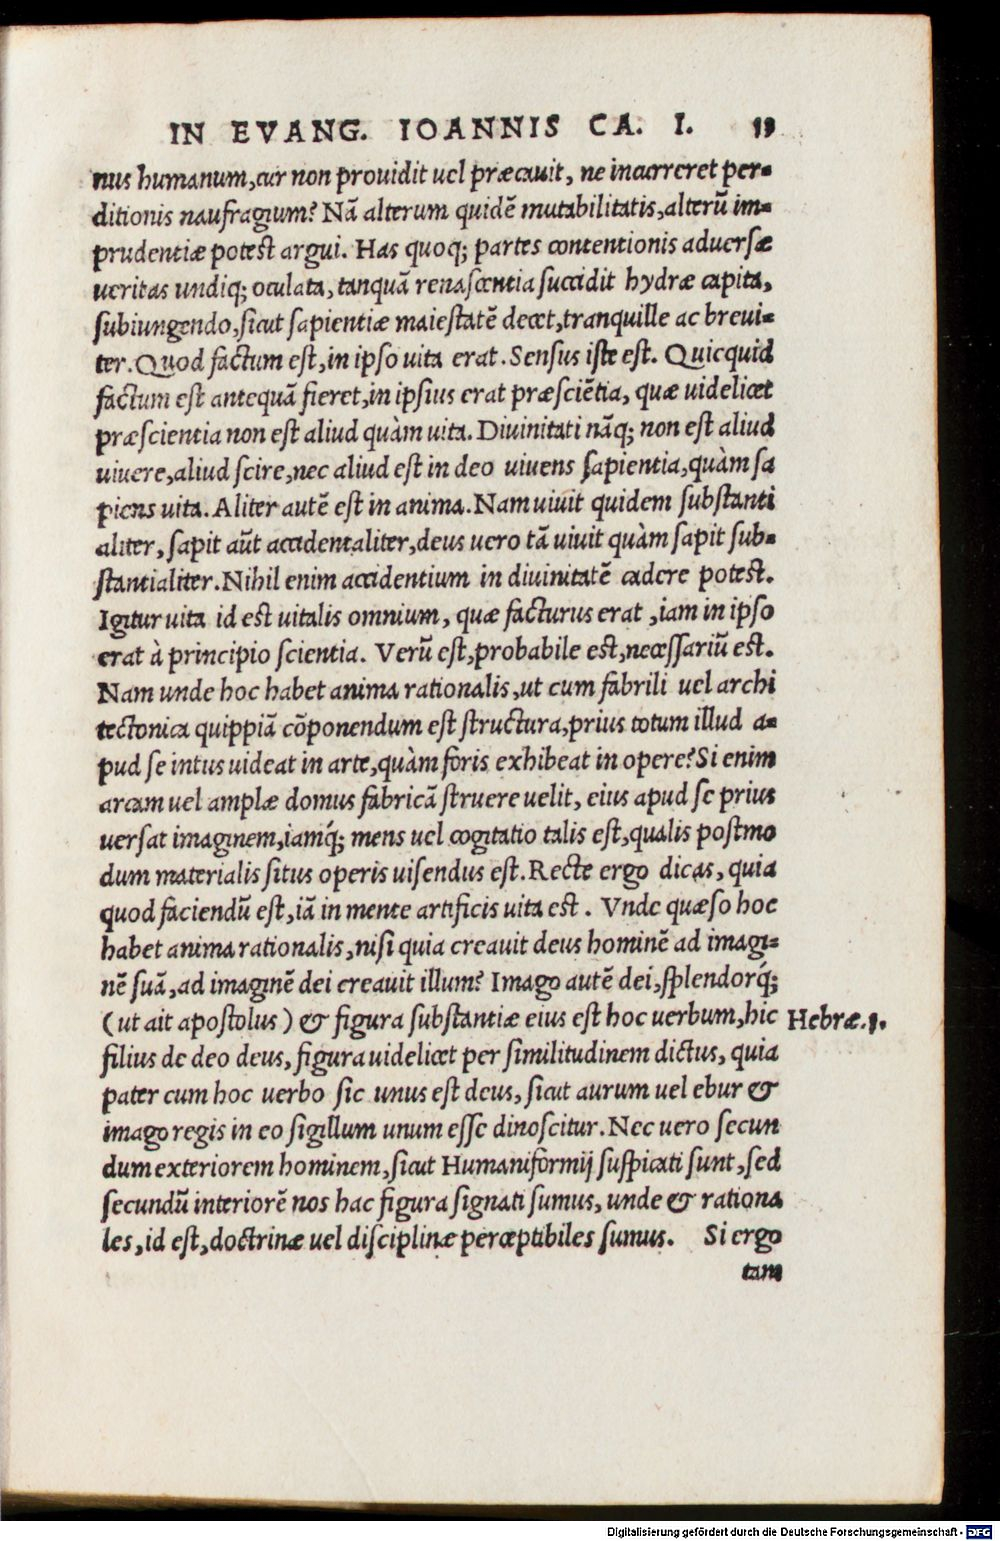 IN EVANG. IOANNIS CA. I. 19
nus humanum, cur non prouidit uel præcauit, ne incurreret per-
ditionis naufragium? Nã alterum quidẽ mutabilitatis, alterũ im-
prudentiæ potest argui. Has quoq; partes contentionis aduersæ
ueritas undiq; oculata, tanquã renascentia succidit hydræ capita,
subiungendo, sicut sapientiæ maiestatẽ decet, tranquille ac breui-
ter. Quod factum est, in ipso uita erat. Sensus iste est. Quicquid
factum est antequã fieret, in ipsius erat præsciẽtia, quæ uidelicet
præscientia non est aliud quàm uita. Diuinitati nãq; non est aliud
uiuere, aliud scire, nec aliud est in deo uiuens sapientia, quàm sa
piens uita. Aliter autẽ est in anima. Nam uiuit quidem substanti
aliter, sapit aũt accidentaliter, deus uero tã uiuit quàm sapit sub-
stantialiter. Nihil enim accidentium in diuinitatẽ cadere potest.
Igitur uita id est uitalis omnium, quæ facturus erat, iam in ipso
erat à principio scientia. Verũ est, probabile est, necessariũ est.
Nam unde hoc habet anima rationalis, ut cum fabrili uel archi
tectonica quippiã cõponendum est structura, prius totum illud a-
pud se intus uideat in arte, quàm foris exhibeat in opere? Si enim
arcam uel amplæ domus fabricã struere uelit, eius apud se prius
uersat imaginem, iamq́; mens uel cogitatio talis est, qualis postmo
dum materialis situs operis uisendus est. Recte ergo dicas, quia
quod faciendũ est, iã in mente artificis uita est. Vnde quæso hoc
habet anima rationalis, nisi quia creauit deus hominẽ ad imagi-
nẽ suã, ad imaginẽ dei creauit illum? Imago autẽ dei, splendorq́;
(ut ait apostolus) & figura substantiæ eius est hoc uerbum, hic
Hebræ. 1.
filius de deo deus, figura uidelicet per similitudinem dictus, quia
pater cum hoc uerbo sic unus est deus, sicut aurum uel ebur &
imago regis in eo sigillum unum esse dinoscitur. Nec uero secun
dum exteriorem hominem, sicut Humaniformij suspicati sunt, sed
secundũ interiorẽ nos hac figura signati sumus, unde & rationa
les, id est, doctrinæ uel disciplinæ perceptibiles sumus. Si ergo
tam
Digitalisierung gefördert durch die Deutsche Forschungsgemeinschaft - DFG